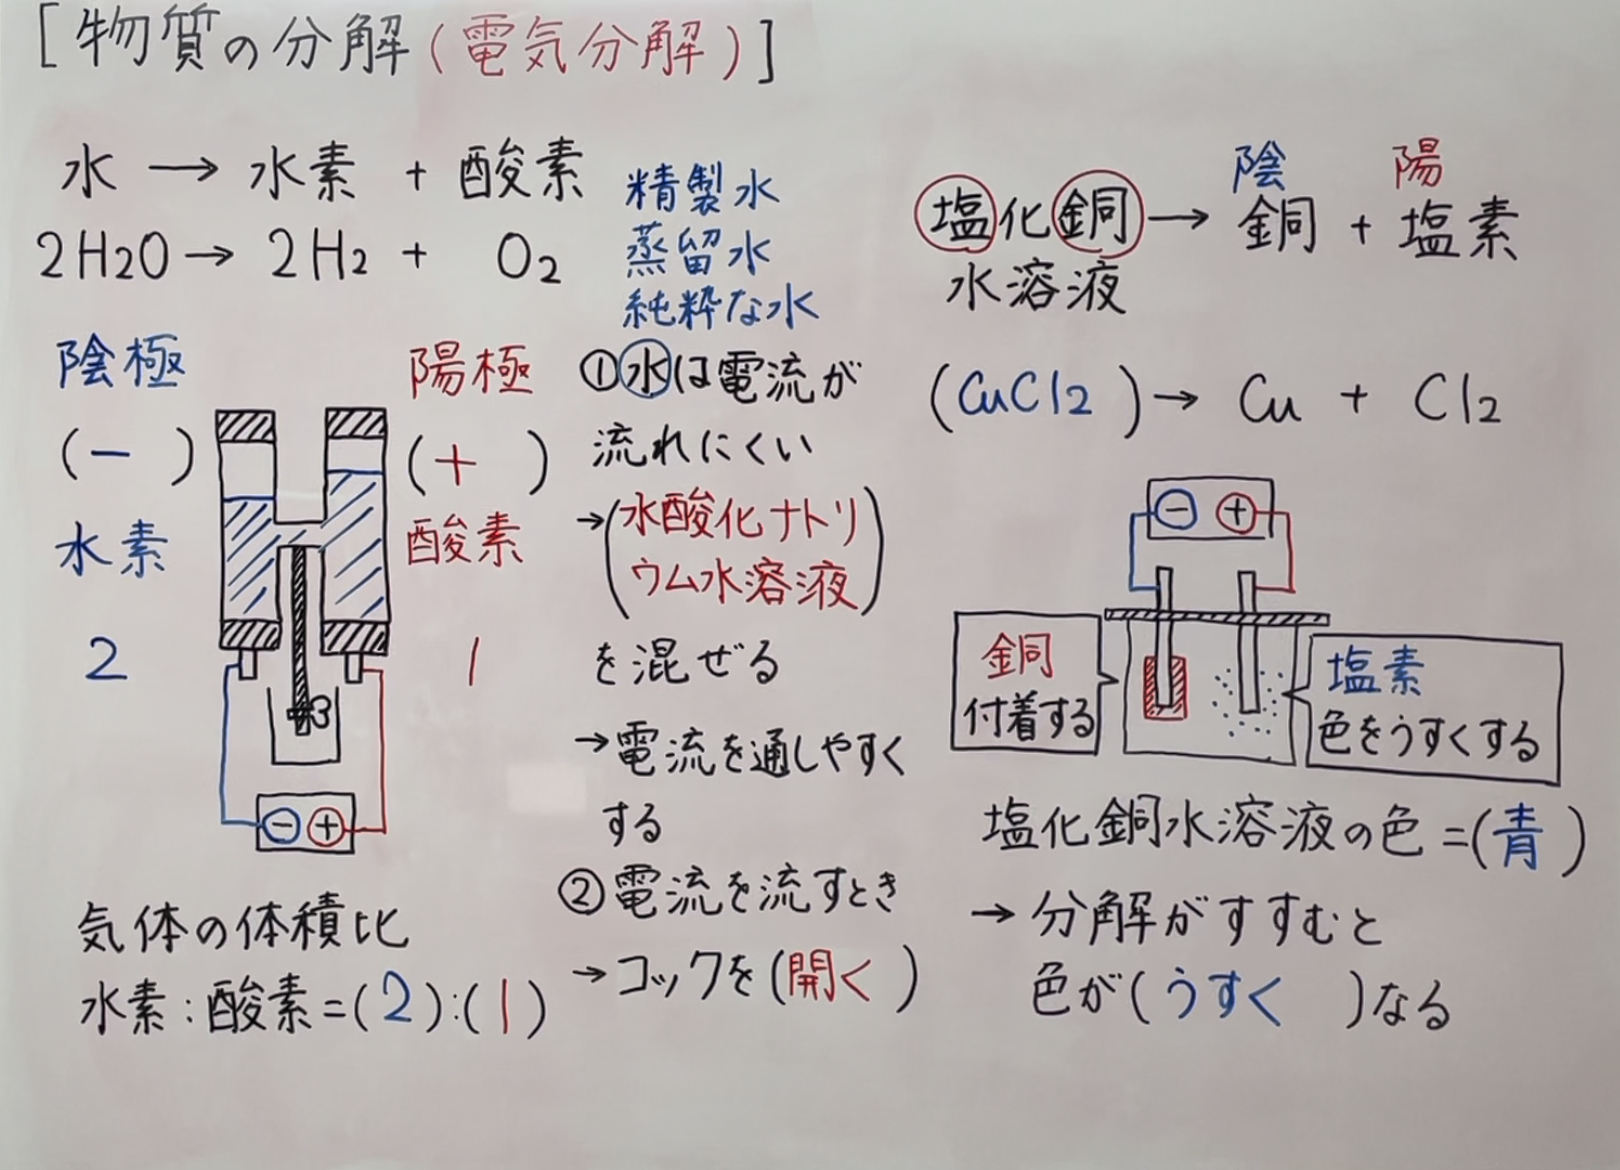 [物質の分解(電気分解)]
水 → 水素 + 酸素
2H2O → 2H2 + O2
精製水
蒸留水
純粋な水
陰極
(−)
水素
2
陽極
(+)
酸素
1
− +
気体の体積比
水素:酸素=(2):(1)
①水は電流が
流れにくい
→(水酸化ナトリ
ウム水溶液)
を混ぜる
→電流を通しやすく
する
②電流を流すとき
→コックを(開く)
陰 陽
塩化銅 → 銅 + 塩素
水溶液
(CuCl2) → Cu + Cl2
− +
銅
付着する
塩素
色をうすくする
塩化銅水溶液の色=(青)
→分解がすすむと
色が(うすく)なる